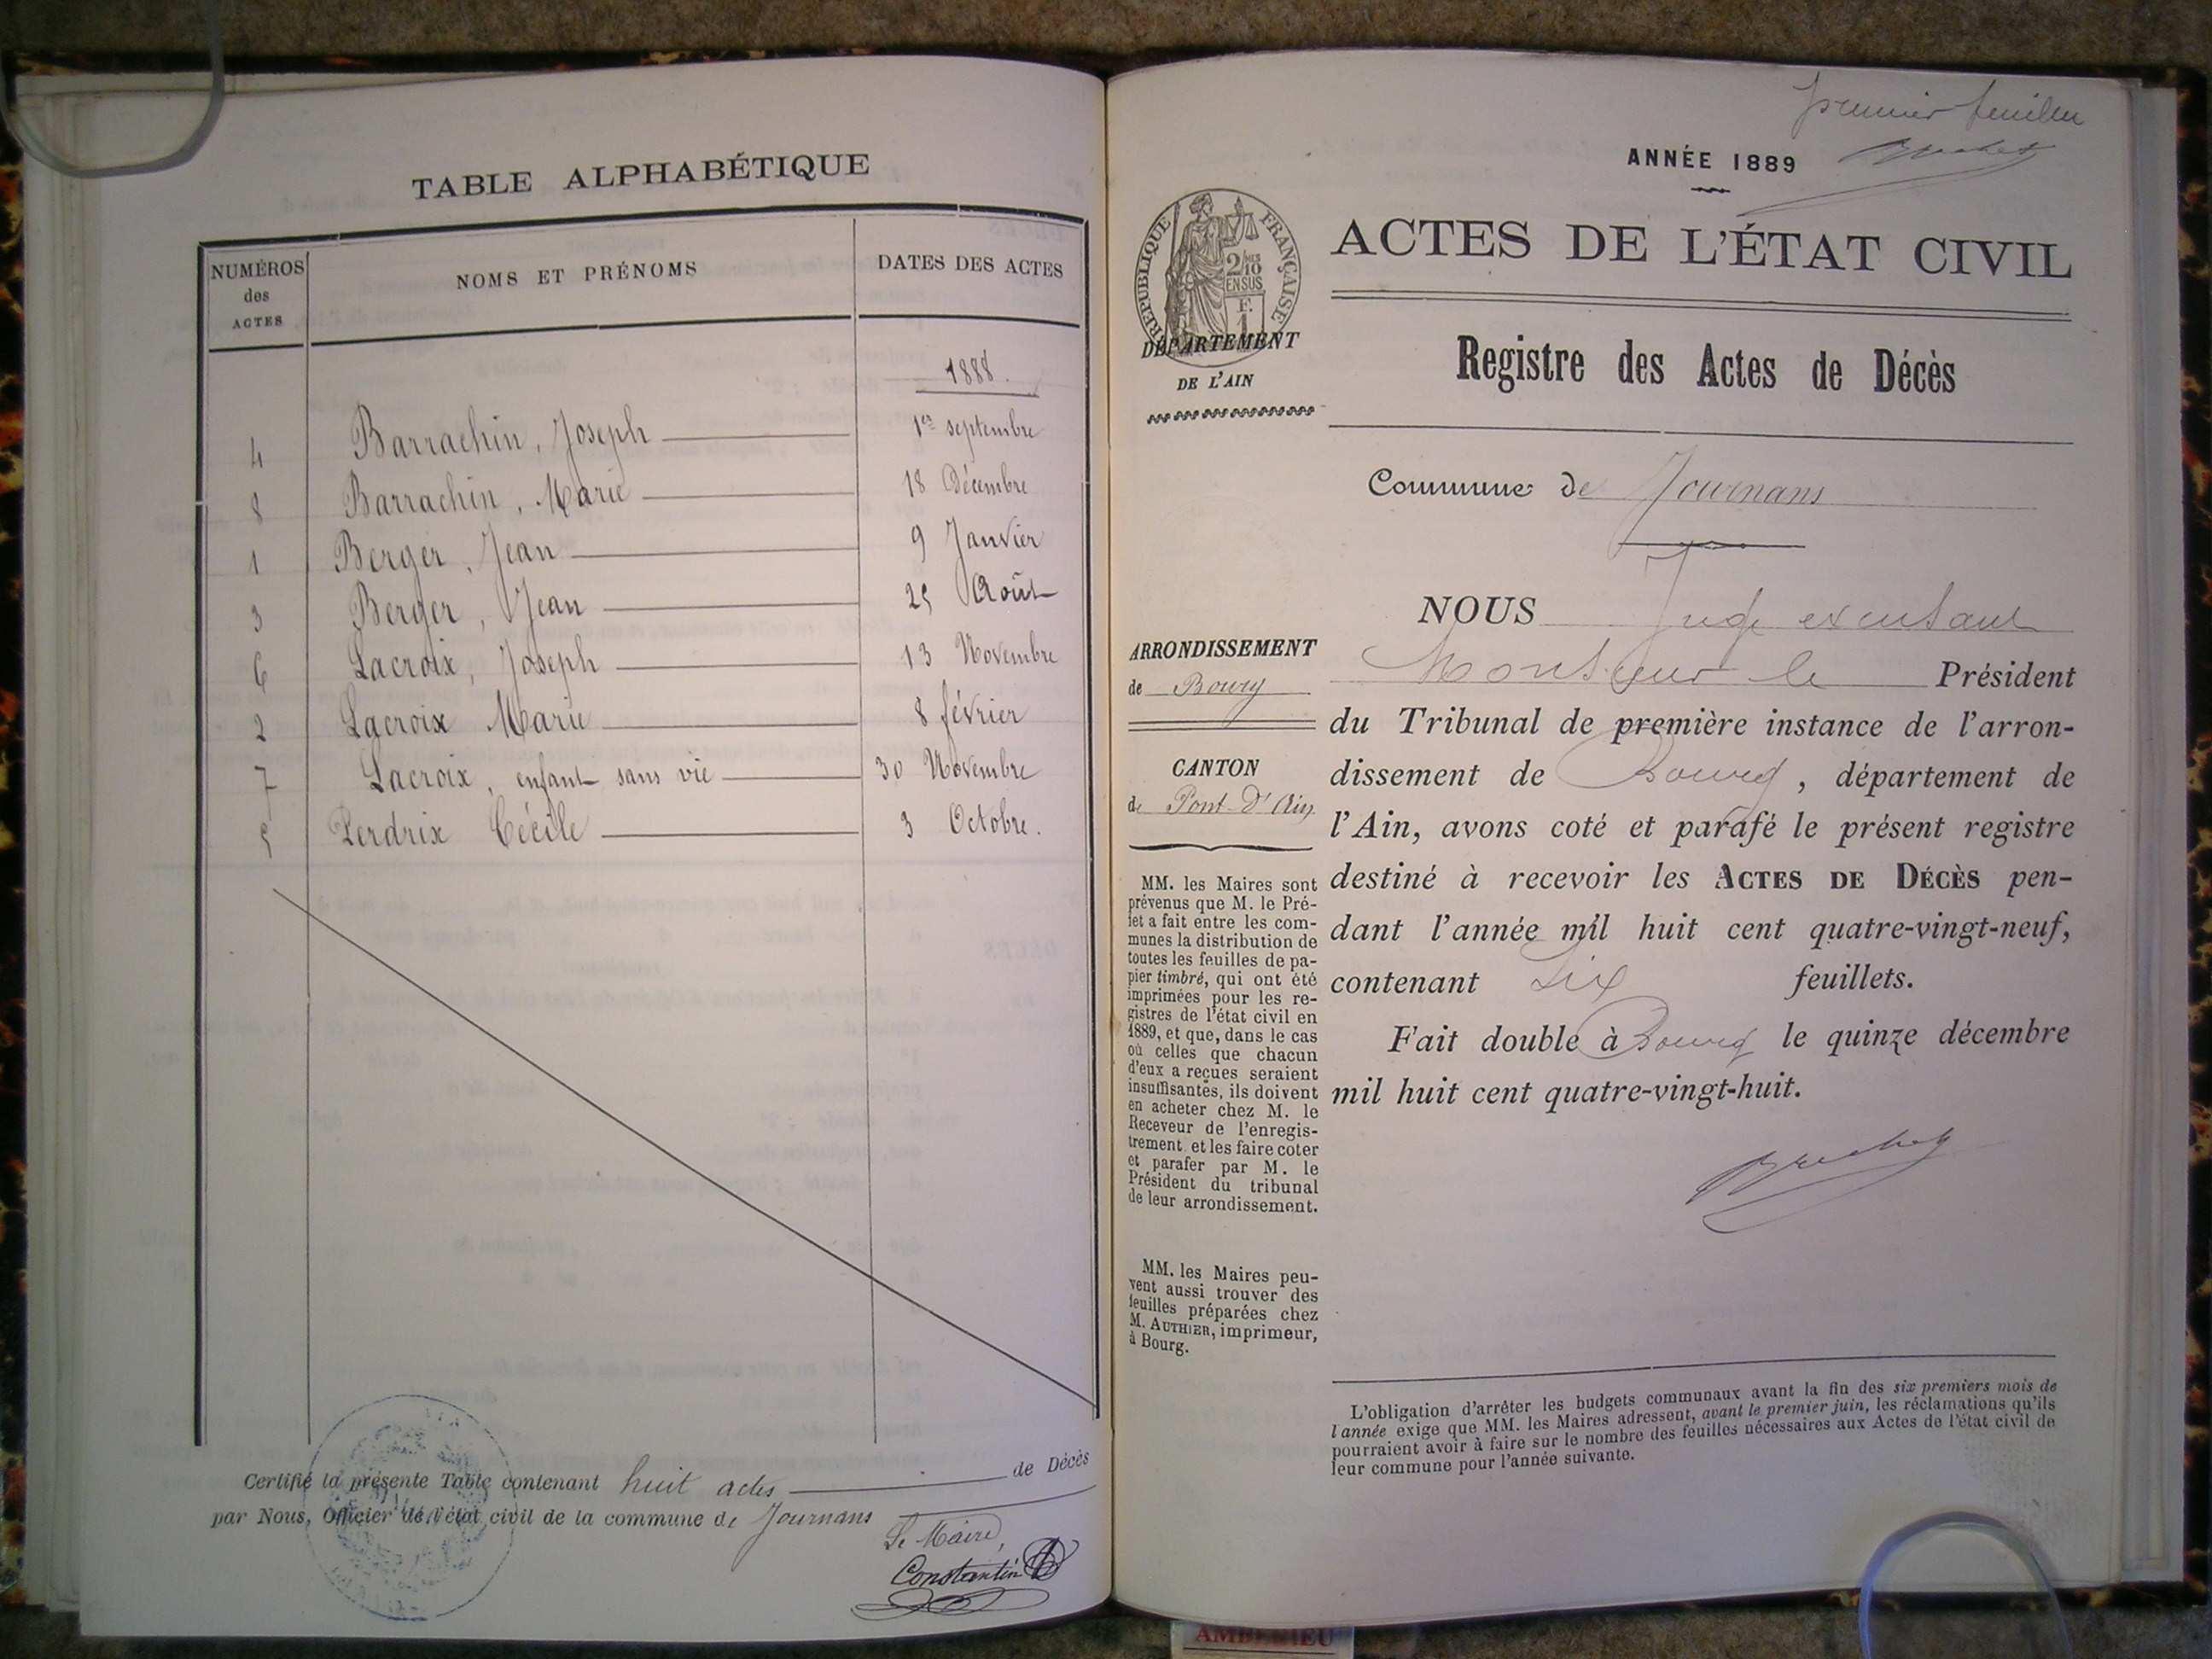 TABLE ALPHABÉTIQUE
NUMÉROS des ACTES
NOMS ET PRÉNOMS
DATES DES ACTES
1888.
4 Barrachin, Joseph 1er septembre
8 Barrachin, Marie 18 Décembre
1 Berger, Jean 9 Janvier
3 Berger, Jean 25 Août
6 Lacroix, Joseph 13 Novembre
2 Lacroix Marie 8 février
7 Lacroix, enfant sans vie 30 Novembre
5 Perdrix Cécile 3 Octobre.
Certifié la présente Table contenant huit actes de Décès
par Nous, Officier de l'état civil de la commune de Journans
Le Maire,
Constantin
premier feuillet
ANNÉE 1889
RÉPUBLIQUE FRANÇAISE
2/10
EN SUS
F.
1
DÉPARTEMENT
DE L'AIN
ACTES DE L'ÉTAT CIVIL
Registre des Actes de Décès
Commune de Journans
ARRONDISSEMENT
de Bourg
CANTON
de Pont-d'Ain
MM. les Maires sont
prévenus que M. le Pré-
fet a fait entre les com-
munes la distribution de
toutes les feuilles de pa-
pier timbré, qui ont été
imprimées pour les re-
gistres de l'état civil en
1889, et que, dans le cas
où celles que chacun
d'eux a reçues seraient
insuffisantes, ils doivent
en acheter chez M. le
Receveur de l'enregis-
trement, et les faire coter
et parafer par M. le
Président du tribunal
de leur arrondissement.
MM. les Maires peu-
vent aussi trouver des
feuilles préparées chez
M. AUTHIER, imprimeur,
à Bourg.
NOUS Juge exerçant
Monsieur le Président
du Tribunal de première instance de l'arron-
dissement de Bourg, département de
l'Ain, avons coté et parafé le présent registre
destiné à recevoir les ACTES DE DÉCÈS pen-
dant l'année mil huit cent quatre-vingt-neuf,
contenant Six feuillets.
Fait double à Bourg le quinze décembre
mil huit cent quatre-vingt-huit.
L'obligation d'arrêter les budgets communaux avant la fin des six premiers mois de
l'année exige que MM. les Maires adressent, avant le premier juin, les réclamations qu'ils
pourraient avoir à faire sur le nombre des feuilles nécessaires aux Actes de l'état civil de
leur commune pour l'année suivante.